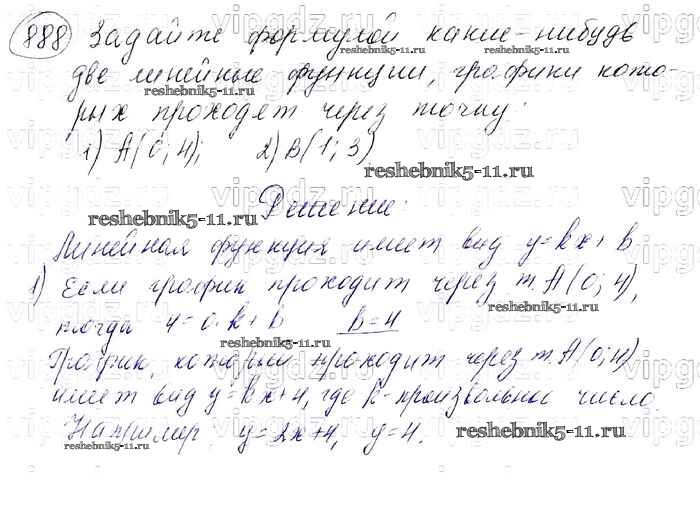 888 Задайте формулой какие-нибудь
две линейные функции, графики кото-
рых проходят через точку:
1) A(0; 4); 2) B(1; 3)
Решение:
Линейная функция имеет вид y=kx+b
1) Если график проходит через т. A(0; 4),
тогда 4=0·k+b b=4
График, который проходит через т. A(0; 4)
имеет вид y=kx+4, где k-произвольное число
Например y=2x+4, y=4.
reshebnik5-11.ru
vipgdz.ru